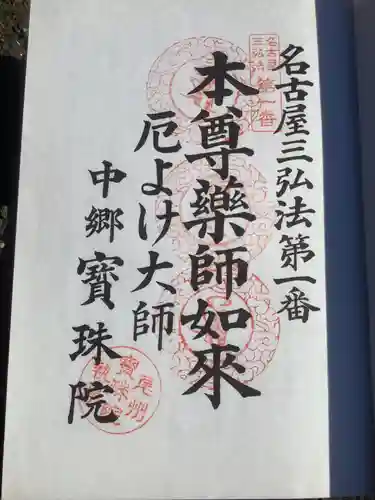 名古屋三弘法第一番
本尊藥師如來
厄よけ大師
中郷寳珠院
名古屋
三弘法
第一番
尾州
寳珠院